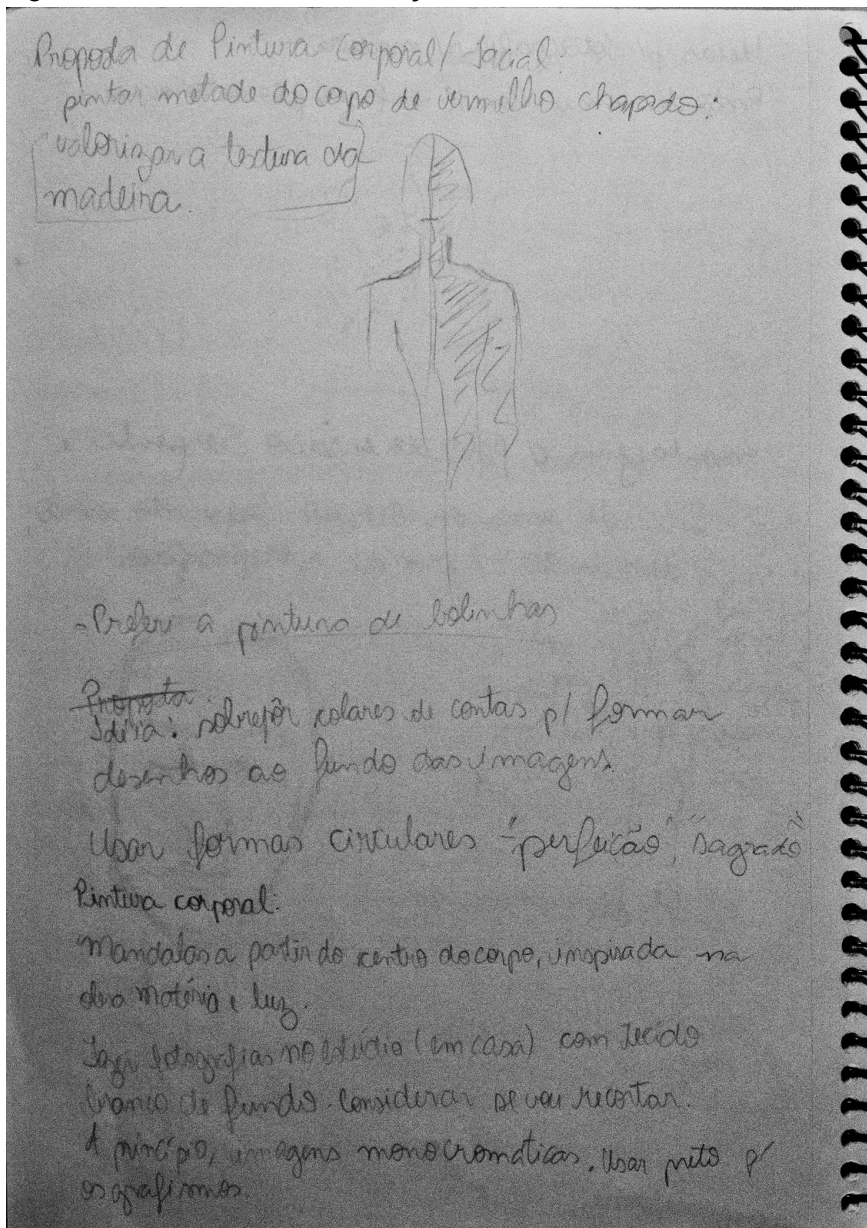 Proposta de Pintura corporal/facial:
pintar metade do corpo de vermelho chapado:
valorizar a textura da
madeira.
- Preferi a pintura de bolinhas
Proposta
Idéia: sobrepôr colares de contas p/ formar
desenhos ao fundo das imagens.
Usar formas circulares - "perfeição", "sagrado"
Pintura corporal:
Mandalas a partir do centro do corpo, inspirada na
obra Matéria e luz.
Fazer fotografias no estúdio (em casa) com tecido
branco de fundo. Considerar se vou recortar.
A princípio, imagens monocromáticas. Usar preto p/
os grafismos.